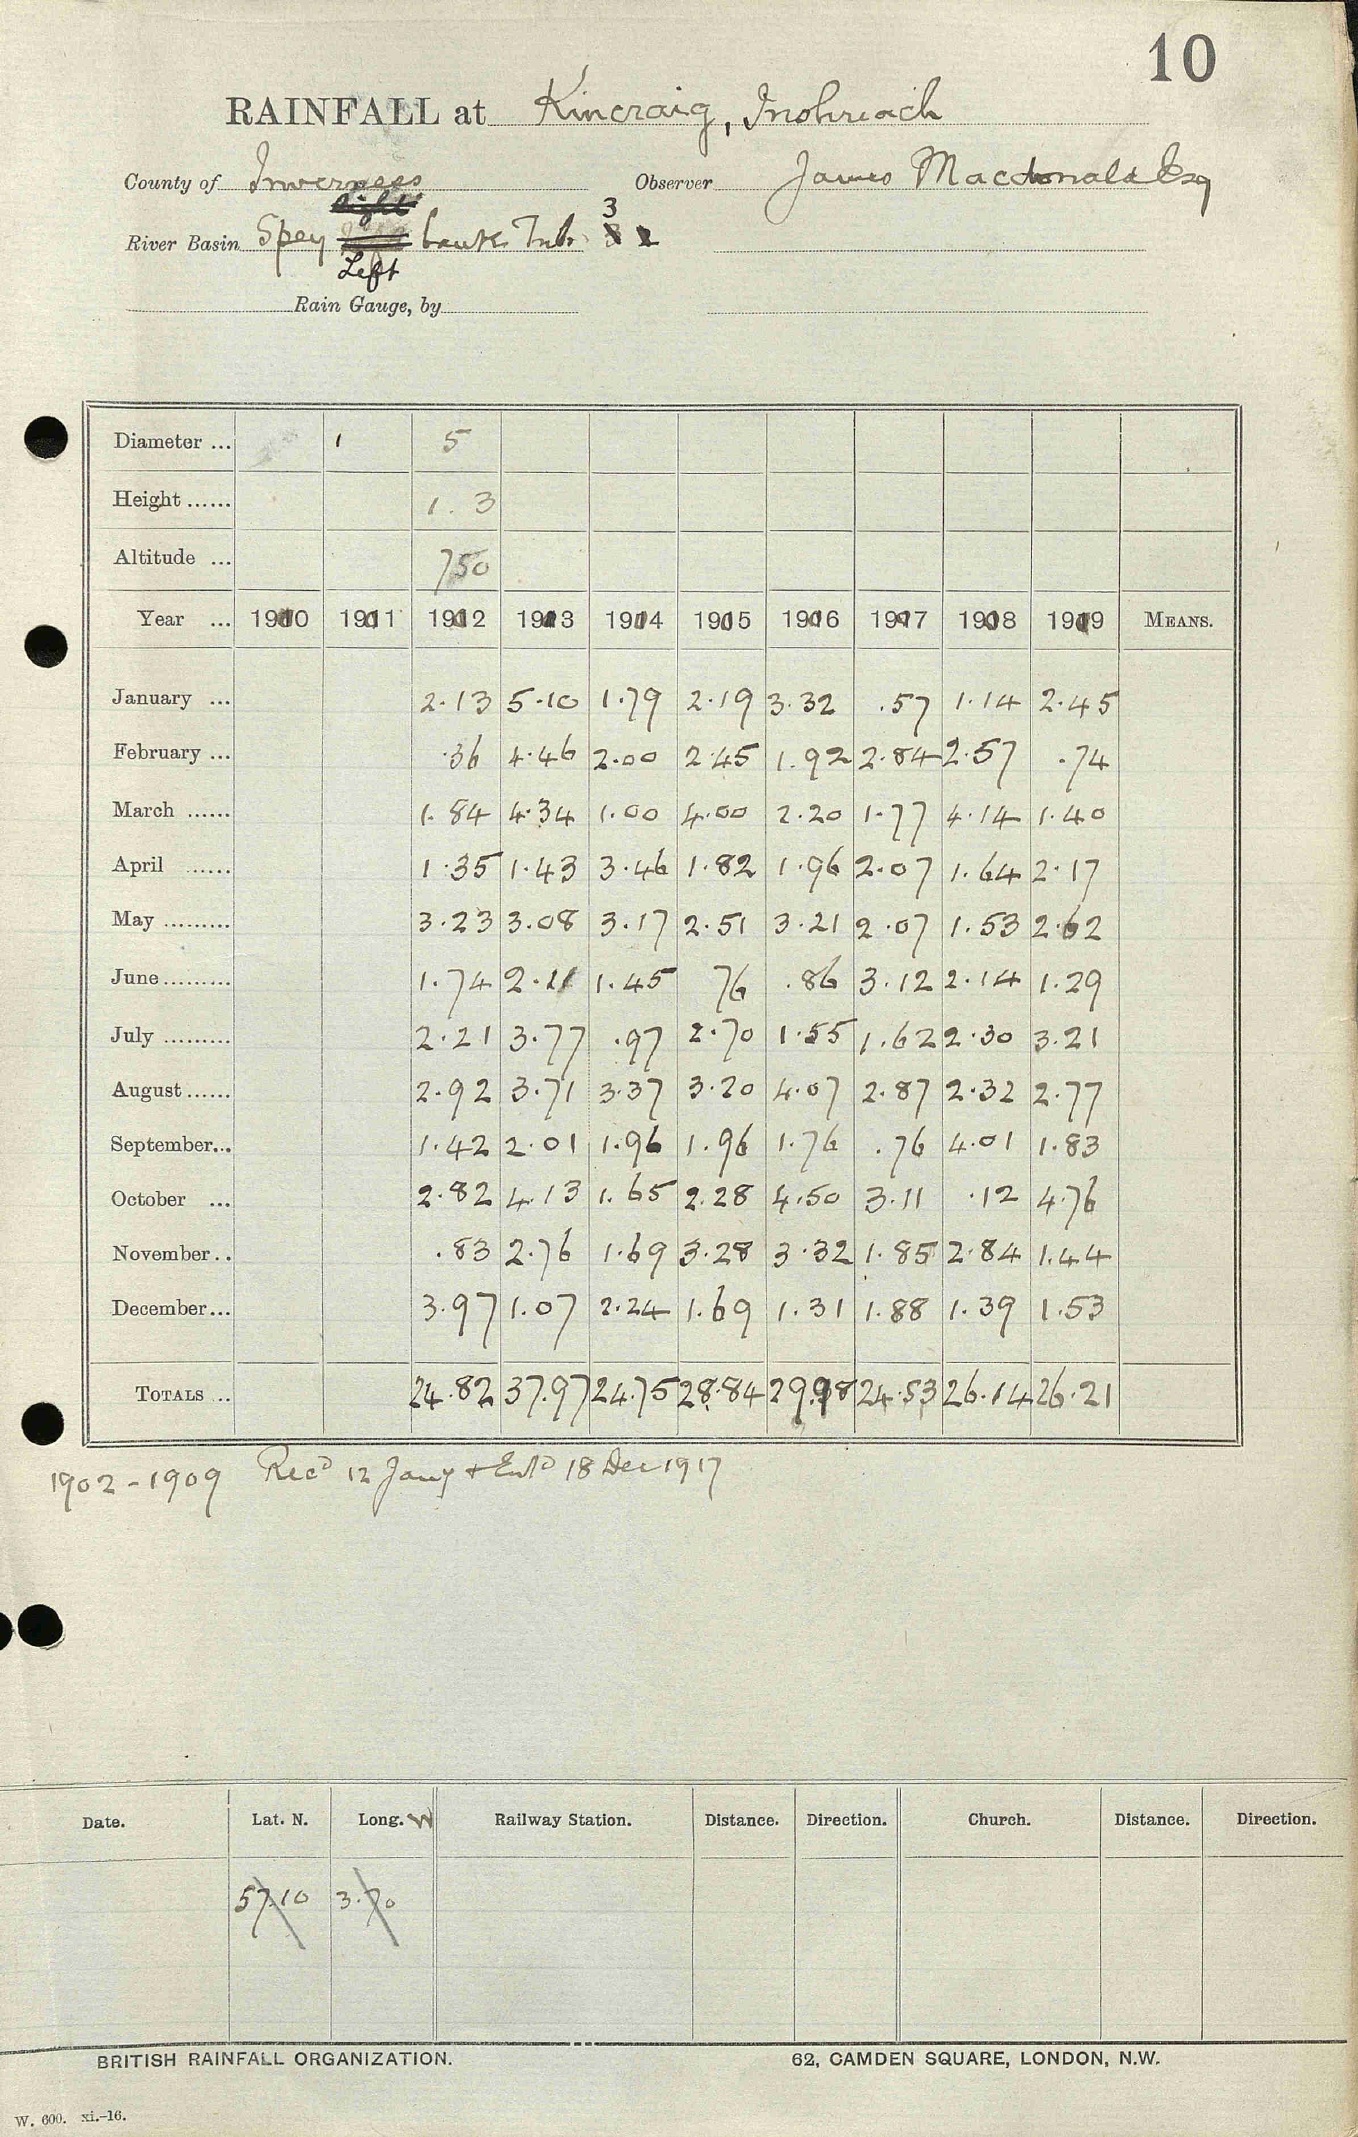 10
RAINFALL at Kincraig, Inshriach
County of Inverness Observer James Macdonald Esq
right
River Basin Spey bank Trib. 3 2
Left
Rain Gauge, by
Diameter ... 5
Height ...... 1. 3
Altitude ... 750
Year ... 1900 1901 1902 1903 1904 1905 1906 1907 1908 1909 MEANS.
January ... 2.13 5.10 1.79 2.19 3.32 .57 1.14 2.45
February ... .36 4.46 2.00 2.45 1.92 2.84 2.57 .74
March ...... 1.84 4.34 1.00 4.00 2.20 1.77 4.14 1.40
April ...... 1.35 1.43 3.46 1.82 1.96 2.07 1.64 2.17
May ......... 3.23 3.08 3.17 2.51 3.21 2.07 1.53 2.62
June ......... 1.74 2.11 1.45 76 .86 3.12 2.14 1.29
July ......... 2.21 3.77 .97 2.70 1.55 1.62 2.30 3.21
August ...... 2.92 3.71 3.37 3.20 4.07 2.87 2.32 2.77
September... 1.42 2.01 1.96 1.96 1.76 .76 4.01 1.83
October ... 2.82 4.13 1.65 2.28 4.50 3.11 .12 4.76
November .. .83 2.76 1.69 3.28 3.32 1.85 2.84 1.44
December... 3.97 1.07 2.24 1.69 1.31 1.88 1.39 1.53
TOTALS ... 24.82 37.97 24.75 28.84 29.98 24.53 26.14 26.21
1902 - 1909 Recd 12 Jany & Entd 18 Dec 1917
Date. Lat. N. Long. W Railway Station. Distance. Direction. Church. Distance. Direction.
57.10 3.70
BRITISH RAINFALL ORGANIZATION. 62, CAMDEN SQUARE, LONDON, N.W.
W. 600. xi.-16.